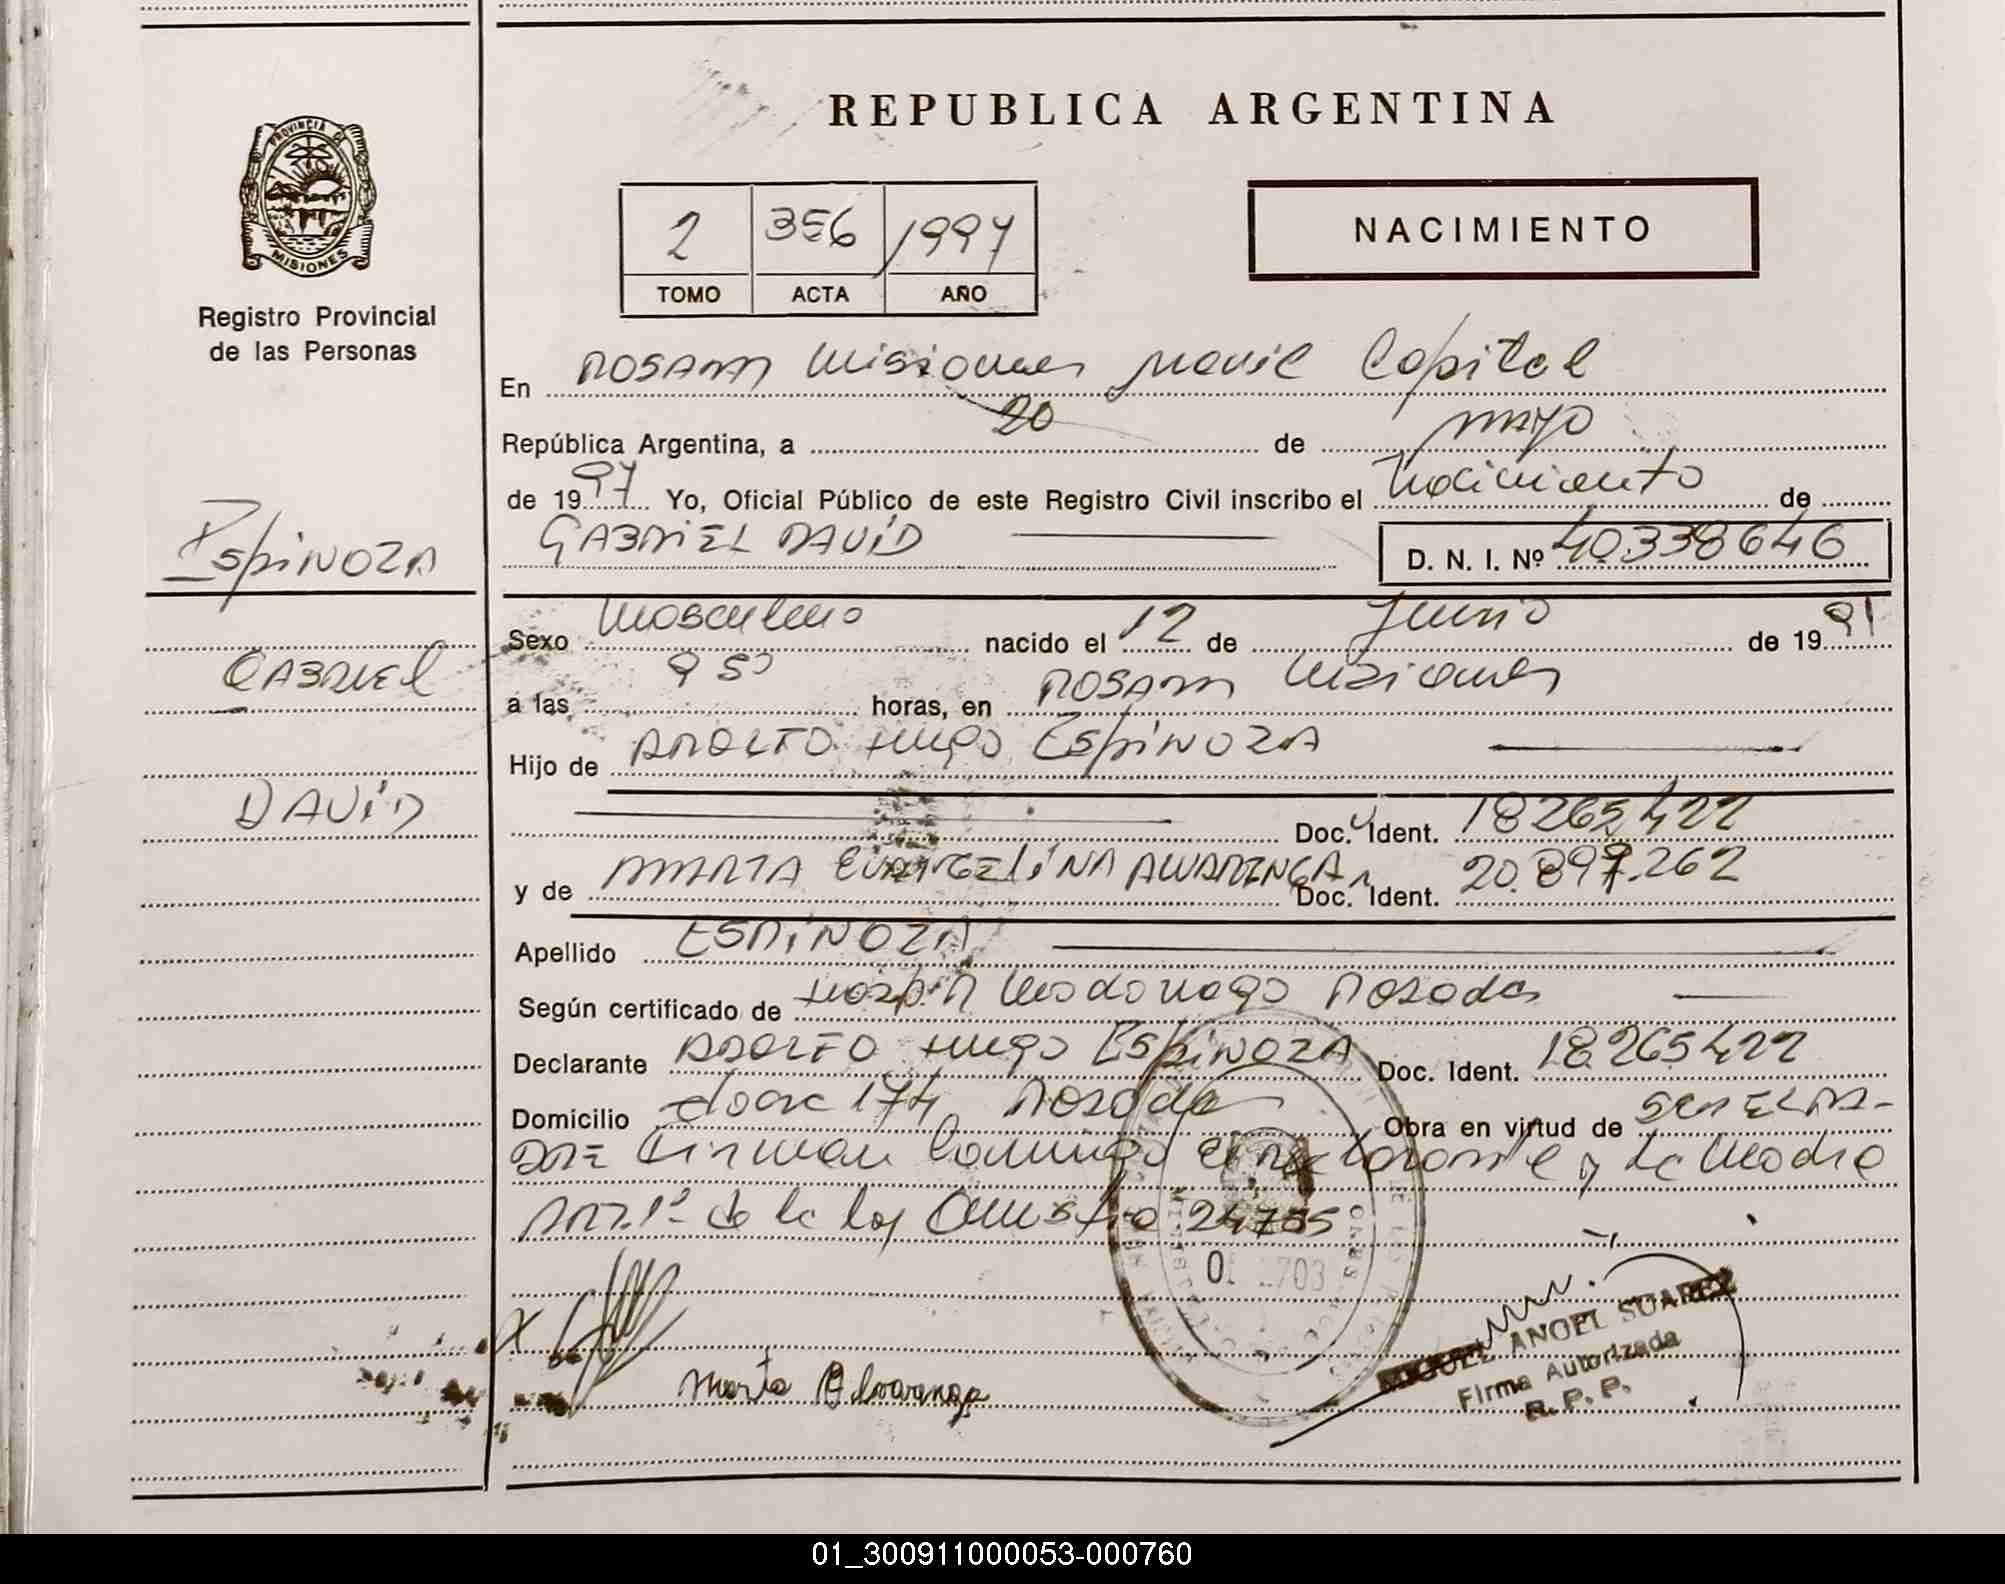 REPUBLICA ARGENTINA
PROVINCIA DE
MISIONES
Registro Provincial
de las Personas
2 356 1997
TOMO ACTA AÑO
NACIMIENTO
En Misiones Movil Capital
República Argentina, a 20 de mayo
de 1997 Yo, Oficial Público de este Registro Civil inscribo el Nacimiento de
GABRIEL DAVID
D. N. I. Nº 40.338646
Espinoza
GABRIEL
DAVID
Sexo Masculino nacido el 12 de Junio de 1991
a las 9 50 horas, en Misiones
Hijo de ADOLFO Hugo Espinoza
Doc. Ident. 18265422
y de MARTA EVANGELINA ALVARENGA Doc. Ident. 20.897.262
Apellido ESPINOZA
Según certificado de Hosp. R Madariaga Posadas
Declarante ADOLFO Hugo Espinoza Doc. Ident. 18.265.422
Domicilio 174 Posadas Obra en virtud de SER EL PA-
DRE Firman Conmigo el declarante y la Madre
ART. 1º de la ley 24755
Marta Alvarenga
MIGUEL ANGEL SUAREZ
Firma Autorizada
R. P. P.
01_300911000053-000760